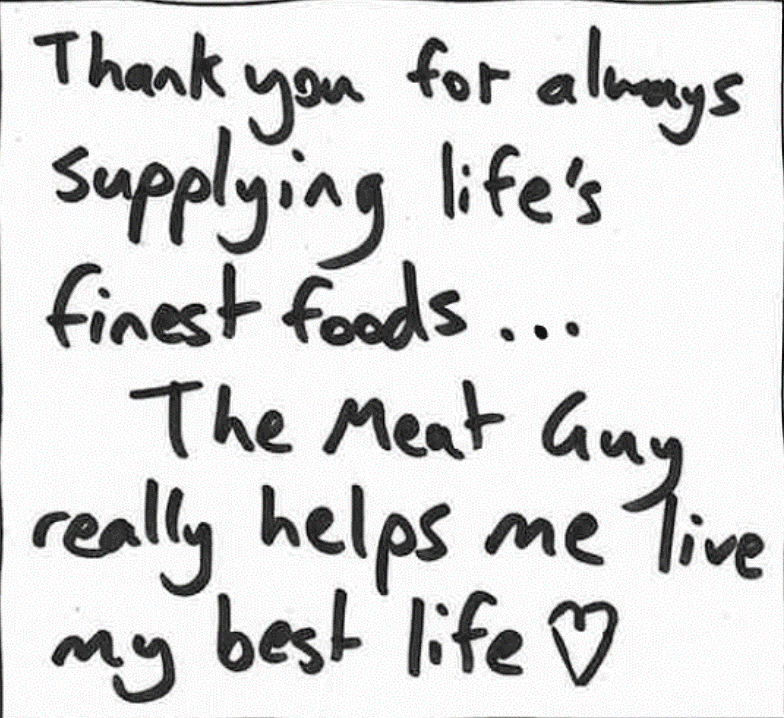 Thank you for always
supplying life's
finest foods...
The Meat Guy
really helps me live
my best life ♡